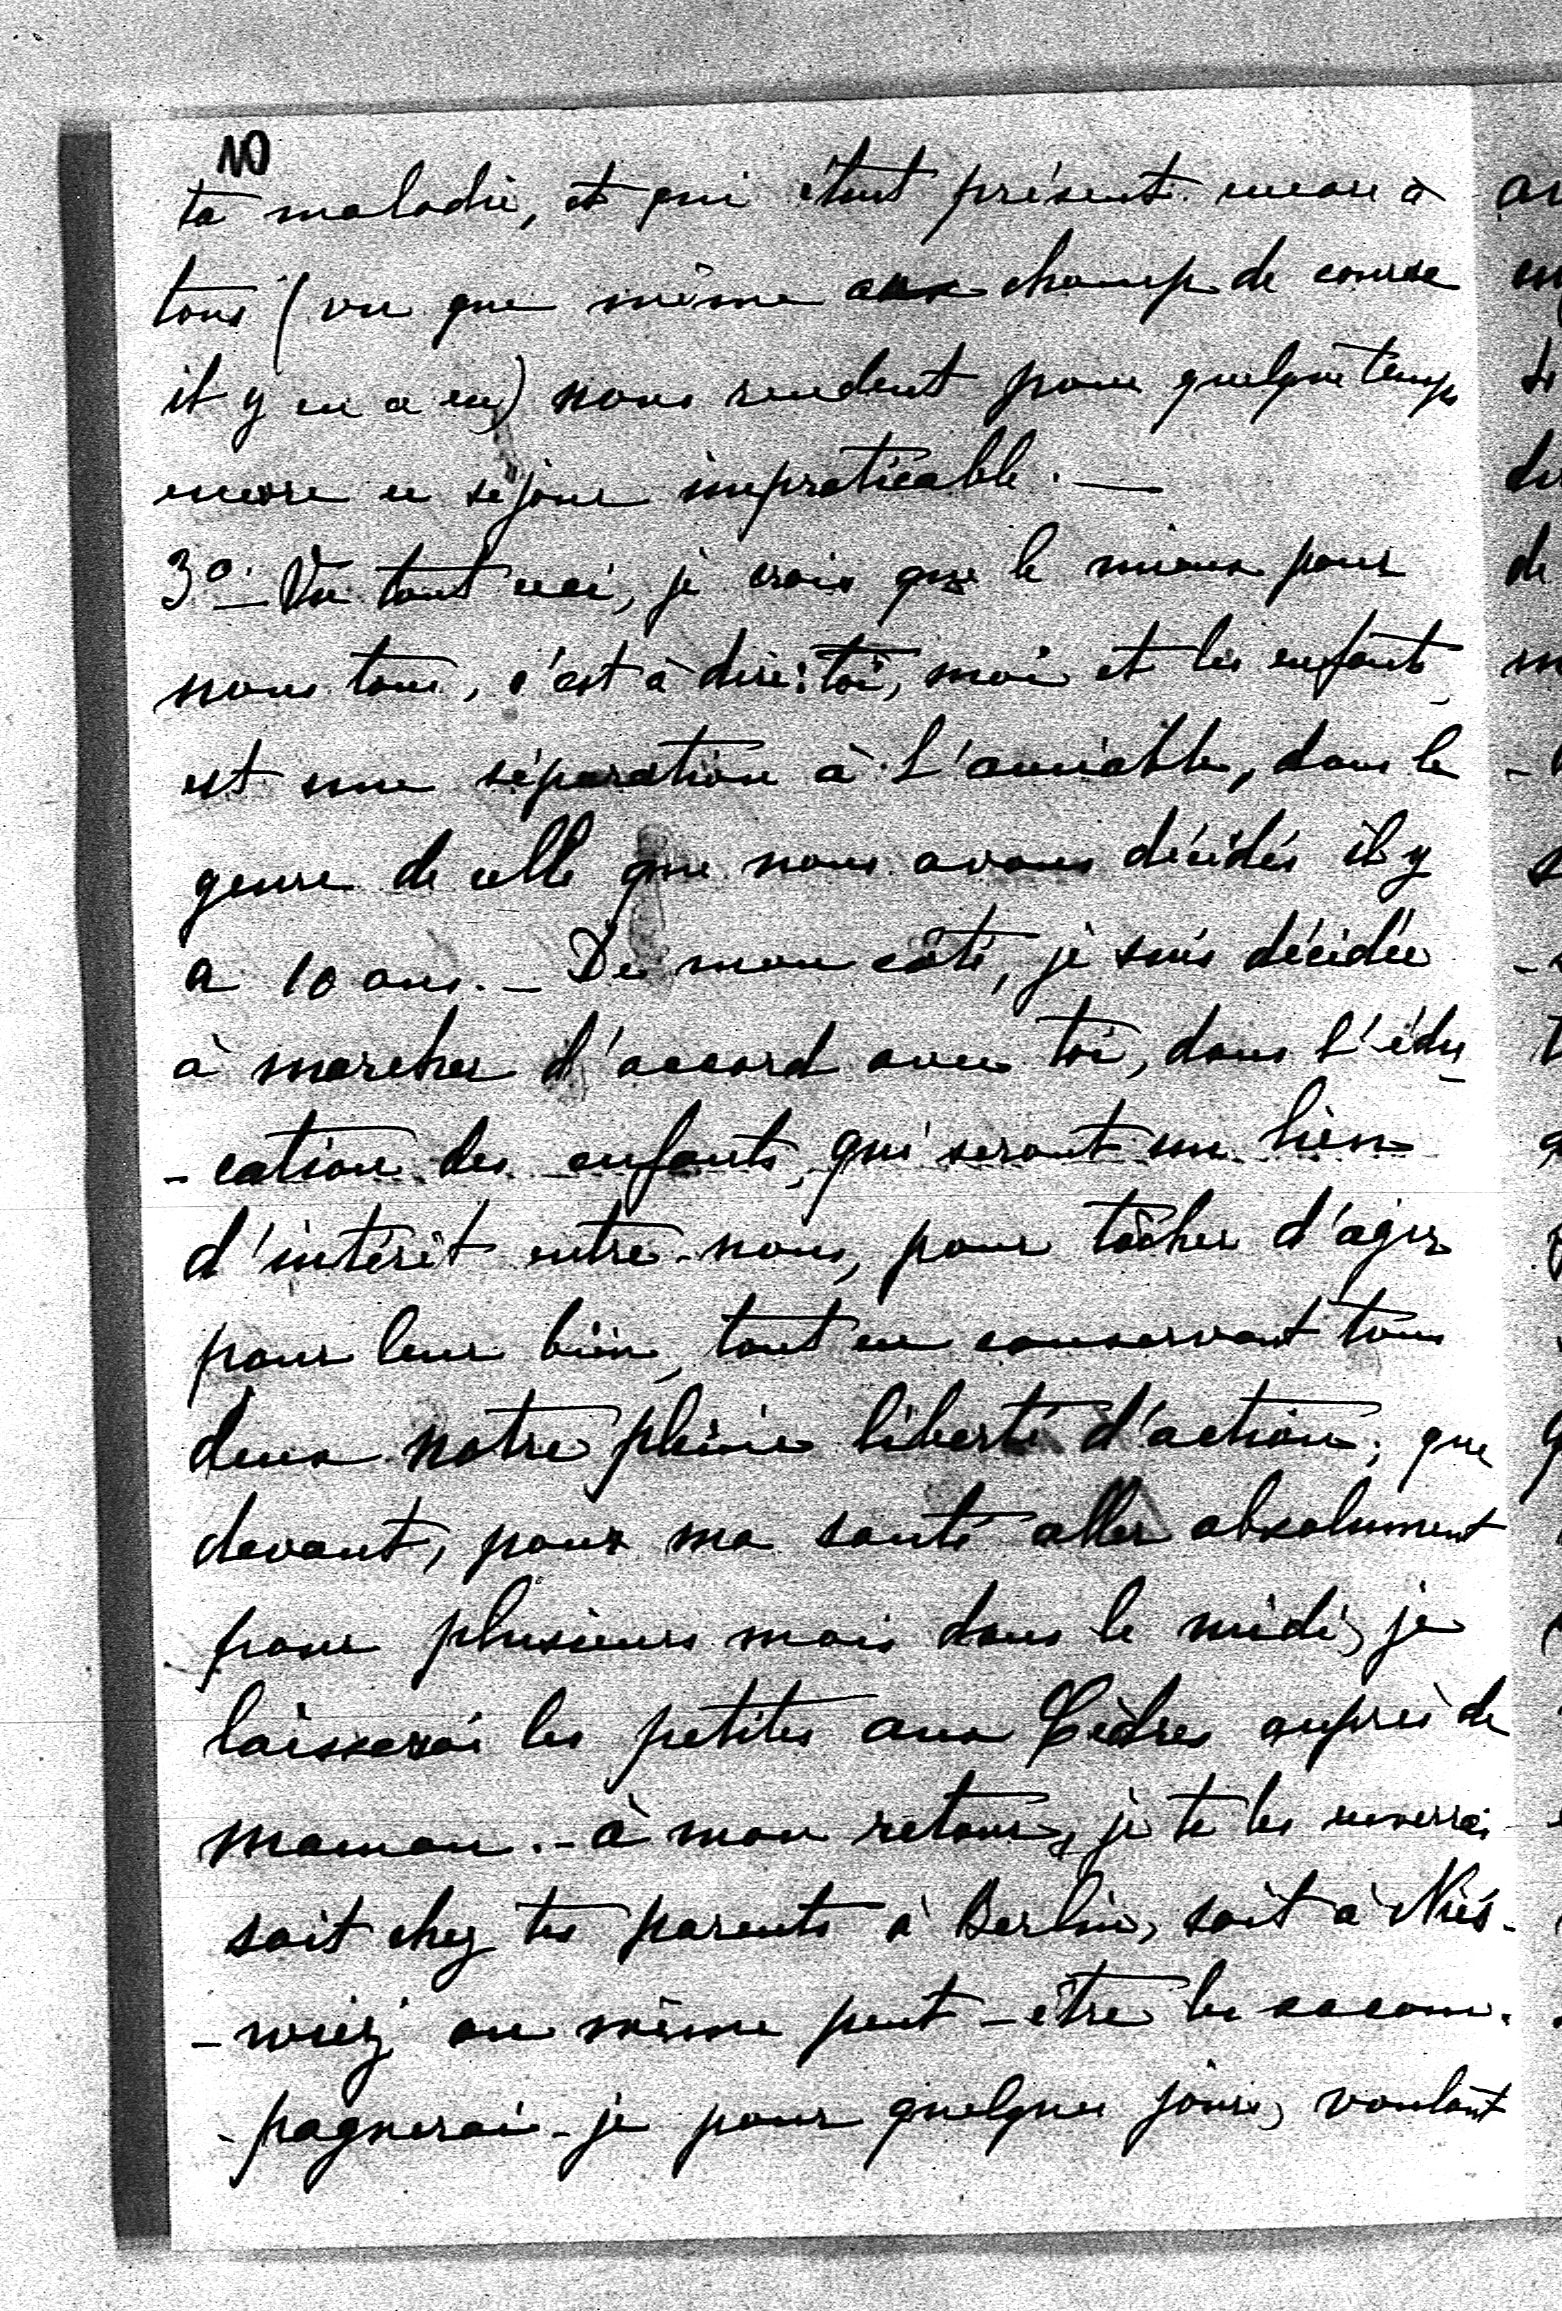 10
ta maladie, et qui étant présent encore à
tous (vu que même aux champ de course
il y en a eu) nous rendent pour quelque temps
encore ce séjour impraticable. —
3º. Vu tout ceci, je crois que le mieux pour
nous tous, c'est à dire: toi, moi et les enfants,
est une séparation à l'amiable, dans le
genre de celle que nous avons décidés il y
a 10 ans. — De mon côté, je suis décidée
à marcher d'accord avec toi, dans l'édu-
-cation des enfants, qui seront un lien
d'intérêt entre nous, pour tâcher d'agir
pour leur bien, tout en conservant tous
deux notre pleine liberté d'action; que
devant, pour ma santé aller absolument
pour plusieurs mois dans le midi, je
laisserai les petites aux Cèdres auprès de
maman. - à mon retour, je te les enverrai
soit chez tes parents à Berlin, soit à Niés-
-wiez ou même peut-être les accom-
-pagnerai-je pour quelques jours, voulant